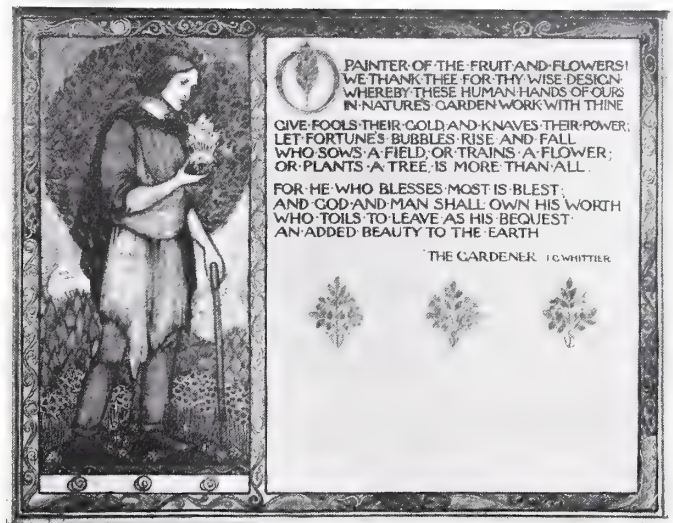 O PAINTER·OF·THE·FRUIT·AND·FLOWERS!
WE·THANK·THEE·FOR·THY·WISE·DESIGN·
WHEREBY·THESE·HUMAN·HANDS·OF·OURS
IN·NATURE'S·GARDEN·WORK·WITH·THINE
GIVE·FOOLS·THEIR·GOLD, AND·KNAVES·THEIR·POWER;
LET·FORTUNE'S·BUBBLES·RISE·AND·FALL
WHO·SOWS·A·FIELD, OR·TRAINS·A·FLOWER;
OR·PLANTS·A·TREE, IS·MORE·THAN·ALL.
FOR·HE·WHO·BLESSES·MOST·IS·BLEST;
AND·GOD·AND·MAN·SHALL·OWN·HIS·WORTH
WHO·TOILS·TO·LEAVE·AS·HIS·BEQUEST·
AN·ADDED·BEAUTY·TO·THE·EARTH
THE GARDENER J G WHITTIER